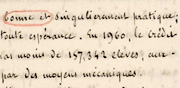 bonne et singulièrement pratique,
toute espérance. En 1960, le crédit
au moins de 157,342 élèves, aux-
par des moyens mécaniques.